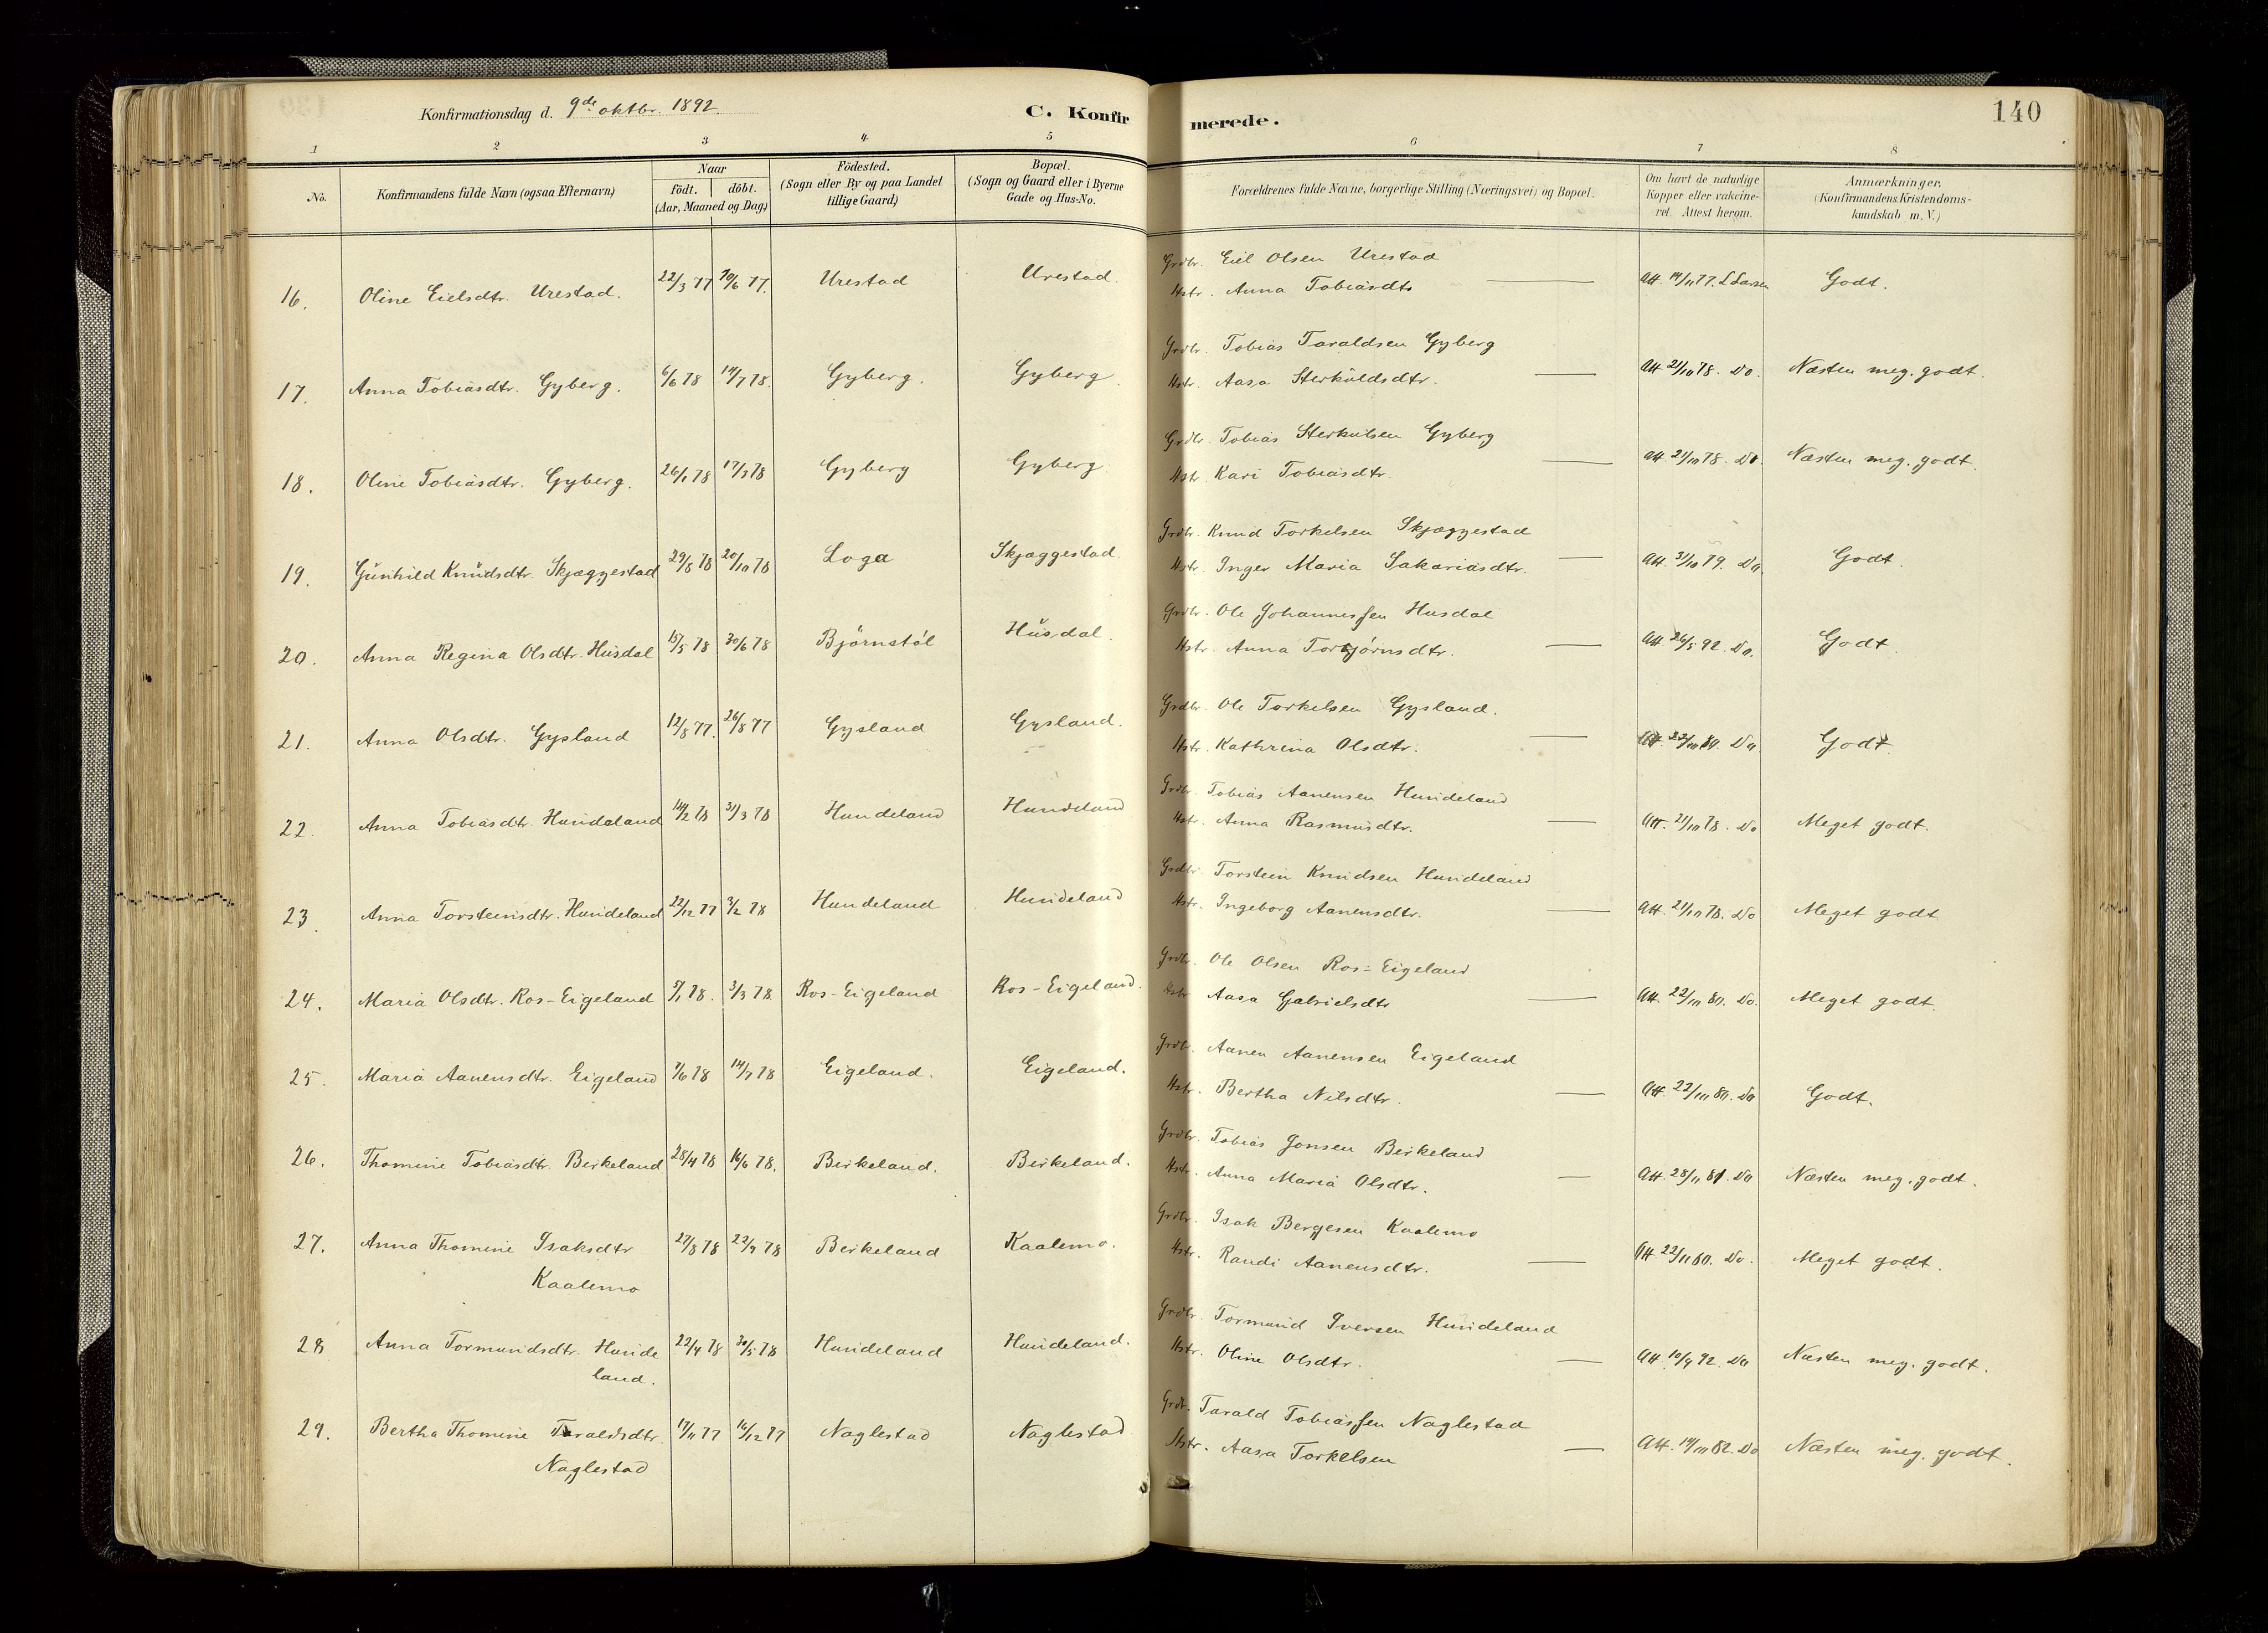 Konfirmationsdag d. 9de oktbr. 1892.
C. Konfirmerede.
140
1 2 3 4 5 6 7 8
No.
Konfirmandens fulde Navn (ogsaa Efternavn)
Naar
födt. | döbt.
(Aar, Maaned og Dag)
Födested.
(Sogn eller By og paa Landet
tillige Gaard)
Bopæl.
(Sogn og Gaard eller i Byerne
Gade og Hus-No.
Forældrenes fulde Navne, borgerlige Stilling (Næringsvei) og Bopæl.
Om havt de naturlige
Kopper eller vakcine-
ret. Attest herom.
Anmærkninger.
(Konfirmandens Kristendoms-
kundskab m. V.)
16. Oline Eielsdtr. Urestad. 22/3 77 10/6 77. Urestad Urestad.
Grdbr. Eiel Olsen Urestad
Hstr. Anna Tobiasdtr — Att. 14/11 77. L Larsen Godt.
17. Anna Tobiasdtr. Gyberg. 6/6 78 14/7 78. Gyberg. Gyberg.
Grdbr. Tobias Taraldsen Gyberg
Hstr. Aasa Sterkuldsdtr. — Att 21/10 78. Do. Næsten meg. godt.
18. Oline Tobiasdtr. Gyberg. 26/1 78 17/3 78 Gyberg Gyberg
Grdbr. Tobias Sterkulsen Gyberg
Hstr Kari Tobiasdtr. — Att. 21/10 78. Do. Næsten meg. godt.
19. Gunhild Knudsdtr. Skjæggestad 29/8 78 20/10 78 Loga Skjæggestad
Grdbr. Knud Torkelsen Skjæggestad
Hstr. Inger Maria Sakariasdtr. — Att. 31/10 79. Do. Godt.
20. Anna Regina Olsdtr. Husdal 15/5 78 30/6 78 Björnstöl Husdal.
Grdbr. Ole Johannessen Husdal
Hstr. Anna Torbjörnsdtr. — Att 26/5 92. Do. Godt
21. Anna Olsdtr. Gysland 12/8 77. 26/8 77 Gysland Gysland.
Grdbr. Ole Torkelsen Gysland.
Hstr. Kathrina Olsdtr. — Att. 22/10 80. Do Godt.
22. Anna Tobiasdtr. Hundeland 14/2 78 31/3 78 Hundeland Hundeland
Grdbr. Tobias Aanensen Hundeland
Hstr. Anna Rasmusdtr. — Att. 21/10 78. Do Meget godt.
23. Anna Torsteinsdtr. Hundeland 22/12 77 3/2 78 Hundeland Hundeland
Grdbr. Torstein Knudsen Hundeland
Hstr. Ingeborg Aanensdtr. — Att. 21/10 78. Do Meget godt
24. Maria Olsdtr. Ros-Eigeland 5/1 78. 3/3 78. Ros-Eigeland Ros-Eigeland.
Grdbr. Ole Olsen Ros-Eigeland
Hstr Aasa Gabrielsdtr — Att. 22/10 80. Do. Meget godt.
25. Maria Aanensdtr. Eigeland 7/6 78 14/7 78 Eigeland. Eigeland.
Grdbr. Aanen Aanensen Eigeland
Hstr. Bertha Nilsdtr. — Att. 22/10 80. Do Godt.
26. Thomine Tobiasdtr. Birkeland 28/4 78 16/6 78. Birkeland. Birkeland.
Grdbr. Tobias Jonsen Birkeland
Hstr. Anna Maria Olsdtr. — Att. 28/11 81. Do Næsten meg. godt.
27. Anna Thomine Isaksdtr 27/8 78 22/9 78 Birkeland Kaalemo.
Kaalemo
Grdbr. Isak Bergesen Kaalemo
Hstr. Randi Aanensdtr. — Att. 22/11 80. Do. Meget godt.
28 Anna Tormundsdtr. Hunde 22/4 78 30/5 78 Hundeland Hundeland.
land.
Grdbr. Tormund Iversen Hundeland
Hstr. Oline Olsdtr. — Att. 10/9 92. Do Næsten meg. godt.
29. Bertha Thomine Taraldsdtr. 17/11 77 16/12 77 Naglestad Naglestad
Naglestad
Grdbr. Tarald Tobiassen Naglestad
Hstr. Aasa Torkelsen — Att. 14/10 82. Do Næsten meg. godt.